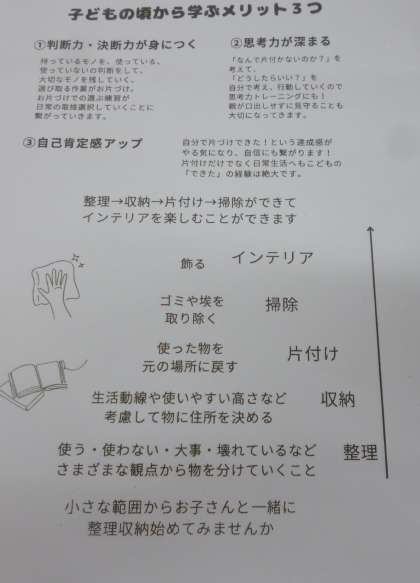 子どもの頃から学ぶメリット3つ
①判断力・決断力が身につく
持っているモノを、使っている、
使っていないの判断をして、
大切なモノを残していく、
選び取る作業がお片づけ。
お片づけでの選ぶ練習が
日常の取捨選択していくことに
繋がっていきます。
②思考力が深まる
「なんで片付かないのか？」を
考えて、
「どうしたらいい？」を
自分で考え、行動していくので
思考力トレーニングにも！
親が口出しせずに見守ることも
大切になってきます。
③自己肯定感アップ
自分で片づけできた！という達成感が
やる気になり、自信にも繋がります！
片付けだけでなく日常生活へもこどもの
「できた」の経験は絶大です。
整理→収納→片付け→掃除ができて
インテリアを楽しむことができます
飾る インテリア
ゴミや埃を
取り除く
掃除
使った物を
元の場所に戻す
片付け
生活動線や使いやすい高さなど
考慮して物に住所を決める
収納
使う・使わない・大事・壊れているなど
さまざまな観点から物を分けていくこと
整理
小さな範囲からお子さんと一緒に
整理収納始めてみませんか